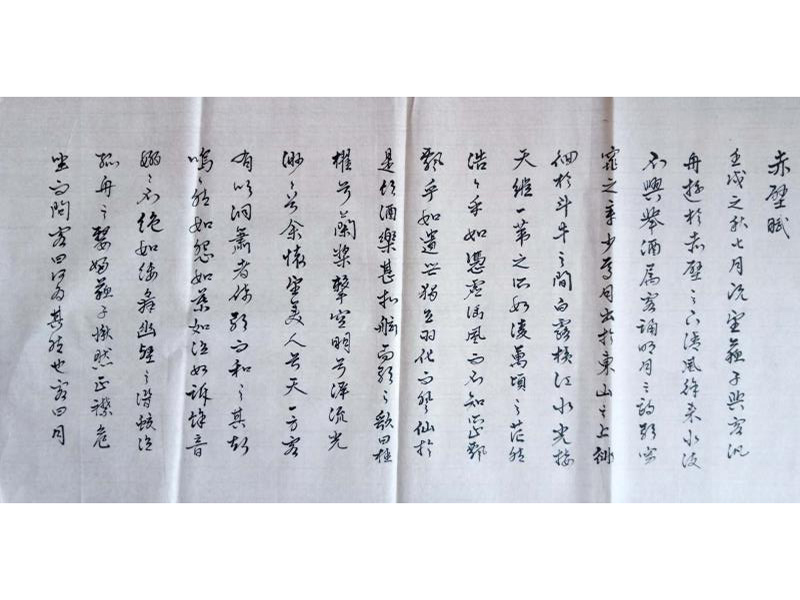 赤壁賦
壬戌之秋七月既望蘇子與客汎
舟遊於赤壁之下清風徐來水波
不興舉酒属客誦明月之詩歌窈
窕之章少焉月出於東山之上徘
徊於斗牛之間白露横江水光接
天縱一葦之所如凌萬頃之茫然
浩浩乎如馮虚御風而不知其所止飄
飄乎如遺世獨立羽化而登仙於
是飲酒樂甚扣舷而歌之歌曰桂
櫂兮蘭槳擊空明兮泝流光
渺渺兮余懷望美人兮天一方客
有吹洞簫者倚歌而和之其聲
嗚嗚然如怨如慕如泣如訴餘音
嫋嫋不絶如縷舞幽壑之潜蛟泣
孤舟之嫠婦蘇子愀然正襟危
坐而問客曰何為其然也客曰月